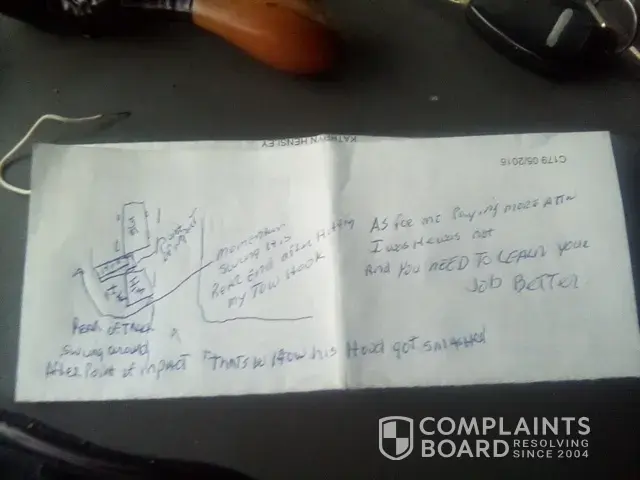 KATHRYN HENSLEY
C179 05/2016
momentum
swung his
Rear End after Hitting
my Tow Hook
Rear of Truck
swung around
After Point of impact
"Thats How his Hood got smashed
As for me Paying more Attn
I was He was not
And You NEED TO LEARN your
Job Better
COMPLAINTS
BOARD RESOLVING
SINCE 2004